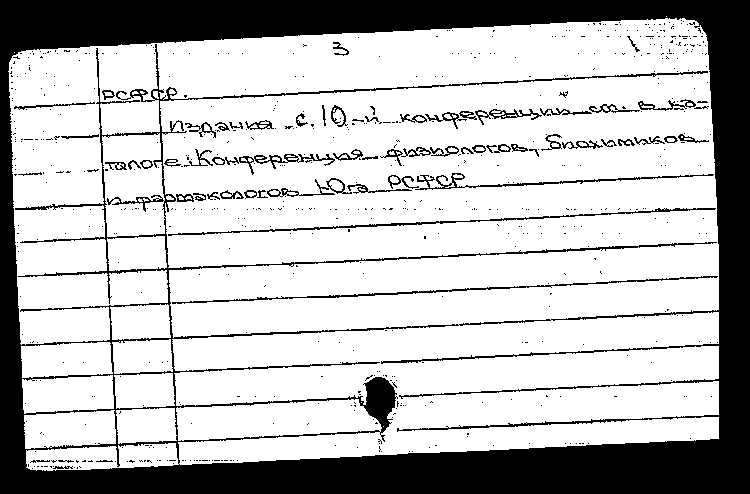 3
РСФСР.
Издания с 10-й конференции см. в ка-
талоге: Конференция физиологов, биохимиков
и фармакологов Юга РСФСР